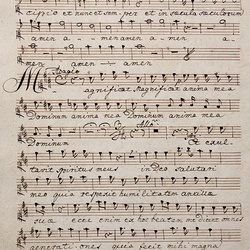 cipio et nunc et semper et in saecula saeculorum
amen a- men amen a- men a-
men amen amen
Adagio
Magnificat, Magnificat anima mea
Dominum anima mea Dominum anima mea
Dominum Et exul-
tavit spiritus meus in Deo salutari
meo quia respexit humilitatem ancillae
suae ecce enim ex hoc beatam me dicent omnes
generationes quia fecit mihi magna